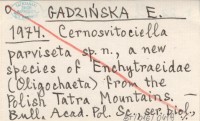 GADZIŃSKA E.
1974. Cernosvitociella
parviseta sp. n., a new
species of Enchytraeidae
(Oligochaeta) from the
Polish Tatra Mountains. –
Bull. Acad. Pol. Sc., ser. biol.,